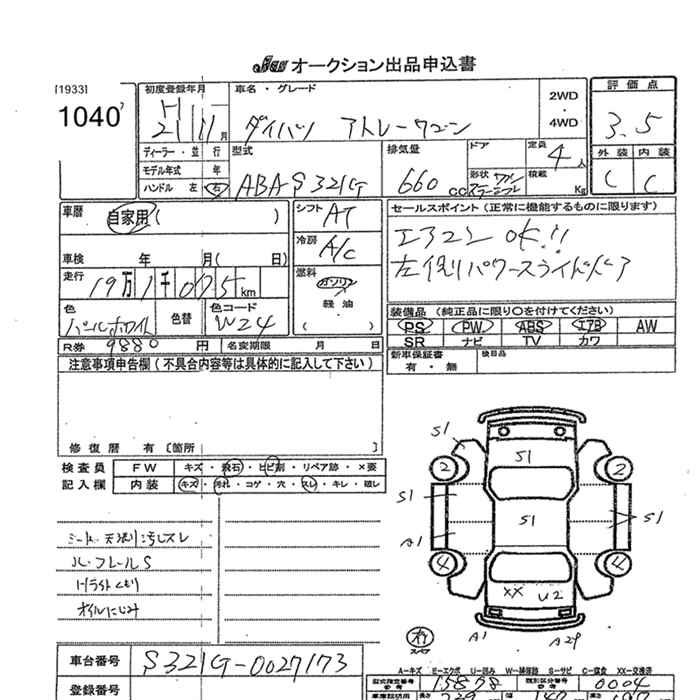 JAU オークション出品申込書
[1933]
1040
初度登録年月 H 21 11月
車名・グレード ダイハツ アトレーワゴン
2WD・4WD
評価点 3.5
ディーラー・並行
モデル年式 年
ハンドル 左 右
型式 ABA S321G
排気量 660 cc
ドア
形状 ワゴン
定員 4人
積載 Kg
外装 C
内装 C
車暦 自家用 ( )
車検 年 月( 日)
走行 19万1千075km
色 パールホワイト
色替
色コード W24
シフト AT
冷房 A/C
燃料 ガソリン
軽油
( )
セールスポイント (正常に機能するものに限ります)
エアコン OK!!
左側パワースライドドア
装備品 (純正品に限り○を付けてください)
PS PW ABS エアB AW
SR ナビ TV カワ
R券 9880円
名変期限 月 日
新車保証書 有・無
後日品
注意事項申告欄 (不具合内容等は具体的に記入して下さい)
修復歴 有 [箇所 ]
検査員 FW キズ・飛石・ヒビ割・リペア跡・×要
記入欄 内装 キズ・汚れ・コゲ・穴・スレ・キレ・破レ
シート 天張り汚レスレ
ル-フレールS
Hライトくもり
オイルにじみ
S1
S1
2
2
S1
S1
S1
A1
4
4
XX
U2
A1
A29
車台番号 S321G-0027173
A-キズ E-エクボ U-凹み W-補修跡 S-サビ C-腐食 XX-交換済
型式指定番号 15878
類別区分番号 0004
登録番号
長さ
幅
高さ